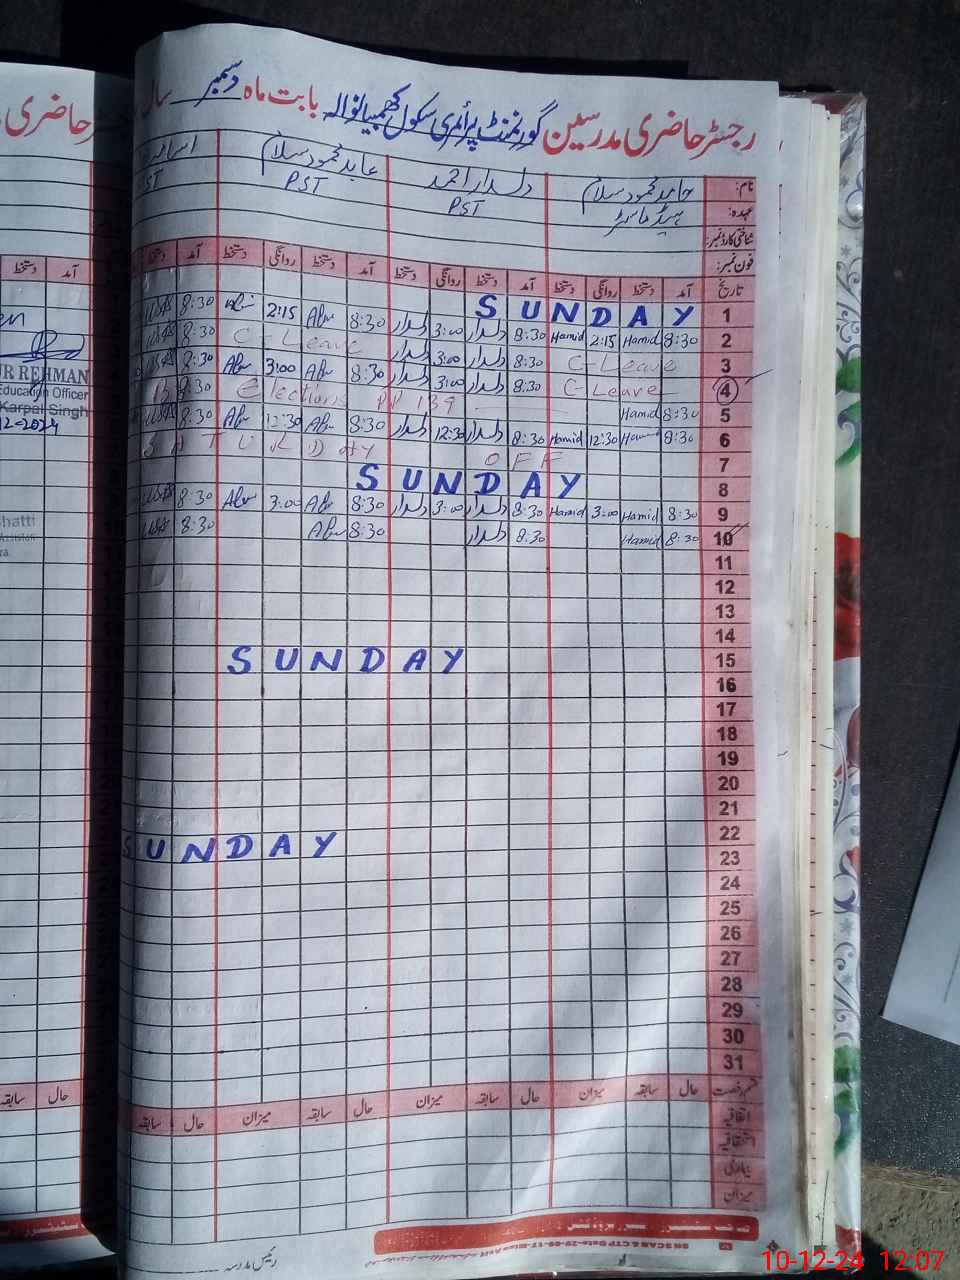 رجسٹر حاضری مدرسین گورنمنٹ پرائمری سکول کھمبیانوالہ بابت ماہ دسمبر سال
حاضری
نام: حامد محمود سلام دلدار احمد عابد محمود سلام
عہدہ: ہیڈ ماسٹر PST PST ST
شناختی کارڈ نمبر:
فون نمبر:
تاریخ آمد دستخط روانگی دستخط آمد دستخط روانگی دستخط آمد دستخط روانگی دستخط آمد دستخط
آمد دستخط
1 SUNDAY
2 8:30 Hamid 2:15 Hamid 8:30 دلدار 3:00 دلدار 8:30 2:15 8:30
3 C-Leave 8:30 دلدار 3:00 دلدار C-Leave 8:30
4 C-Leave 8:30 دلدار 3:00 دلدار 8:30 3:00 8:30
5 8:30 Hamid Elections PP 139 8:30
6 8:30 Hamid 12:30 Hamid 8:30 دلدار 12:30 دلدار 8:30 12:30 8:30
7 SATURDAY OFF
8 SUNDAY
9 8:30 Hamid 3:00 Hamid 8:30 دلدار 3:00 دلدار 8:30 3:00 8:30
10 8:30 Hamid 8:30 دلدار 8:30 8:30
11
12
13
14
15 SUNDAY
16
17
18
19
20
21
22 SUNDAY
23
24
25
26
27
28
29
30
31
حال سابقہ میزان حال سابقہ میزان حال سابقہ میزان حال سابقہ
حال سابقہ
اتفاقیہ
استحقاقیہ
بیماری
میزان
UR REHMAN
Education Officer
Karpal Singh
12-2024
hatti
رئیس مدرسہ
10-12-24 12:07